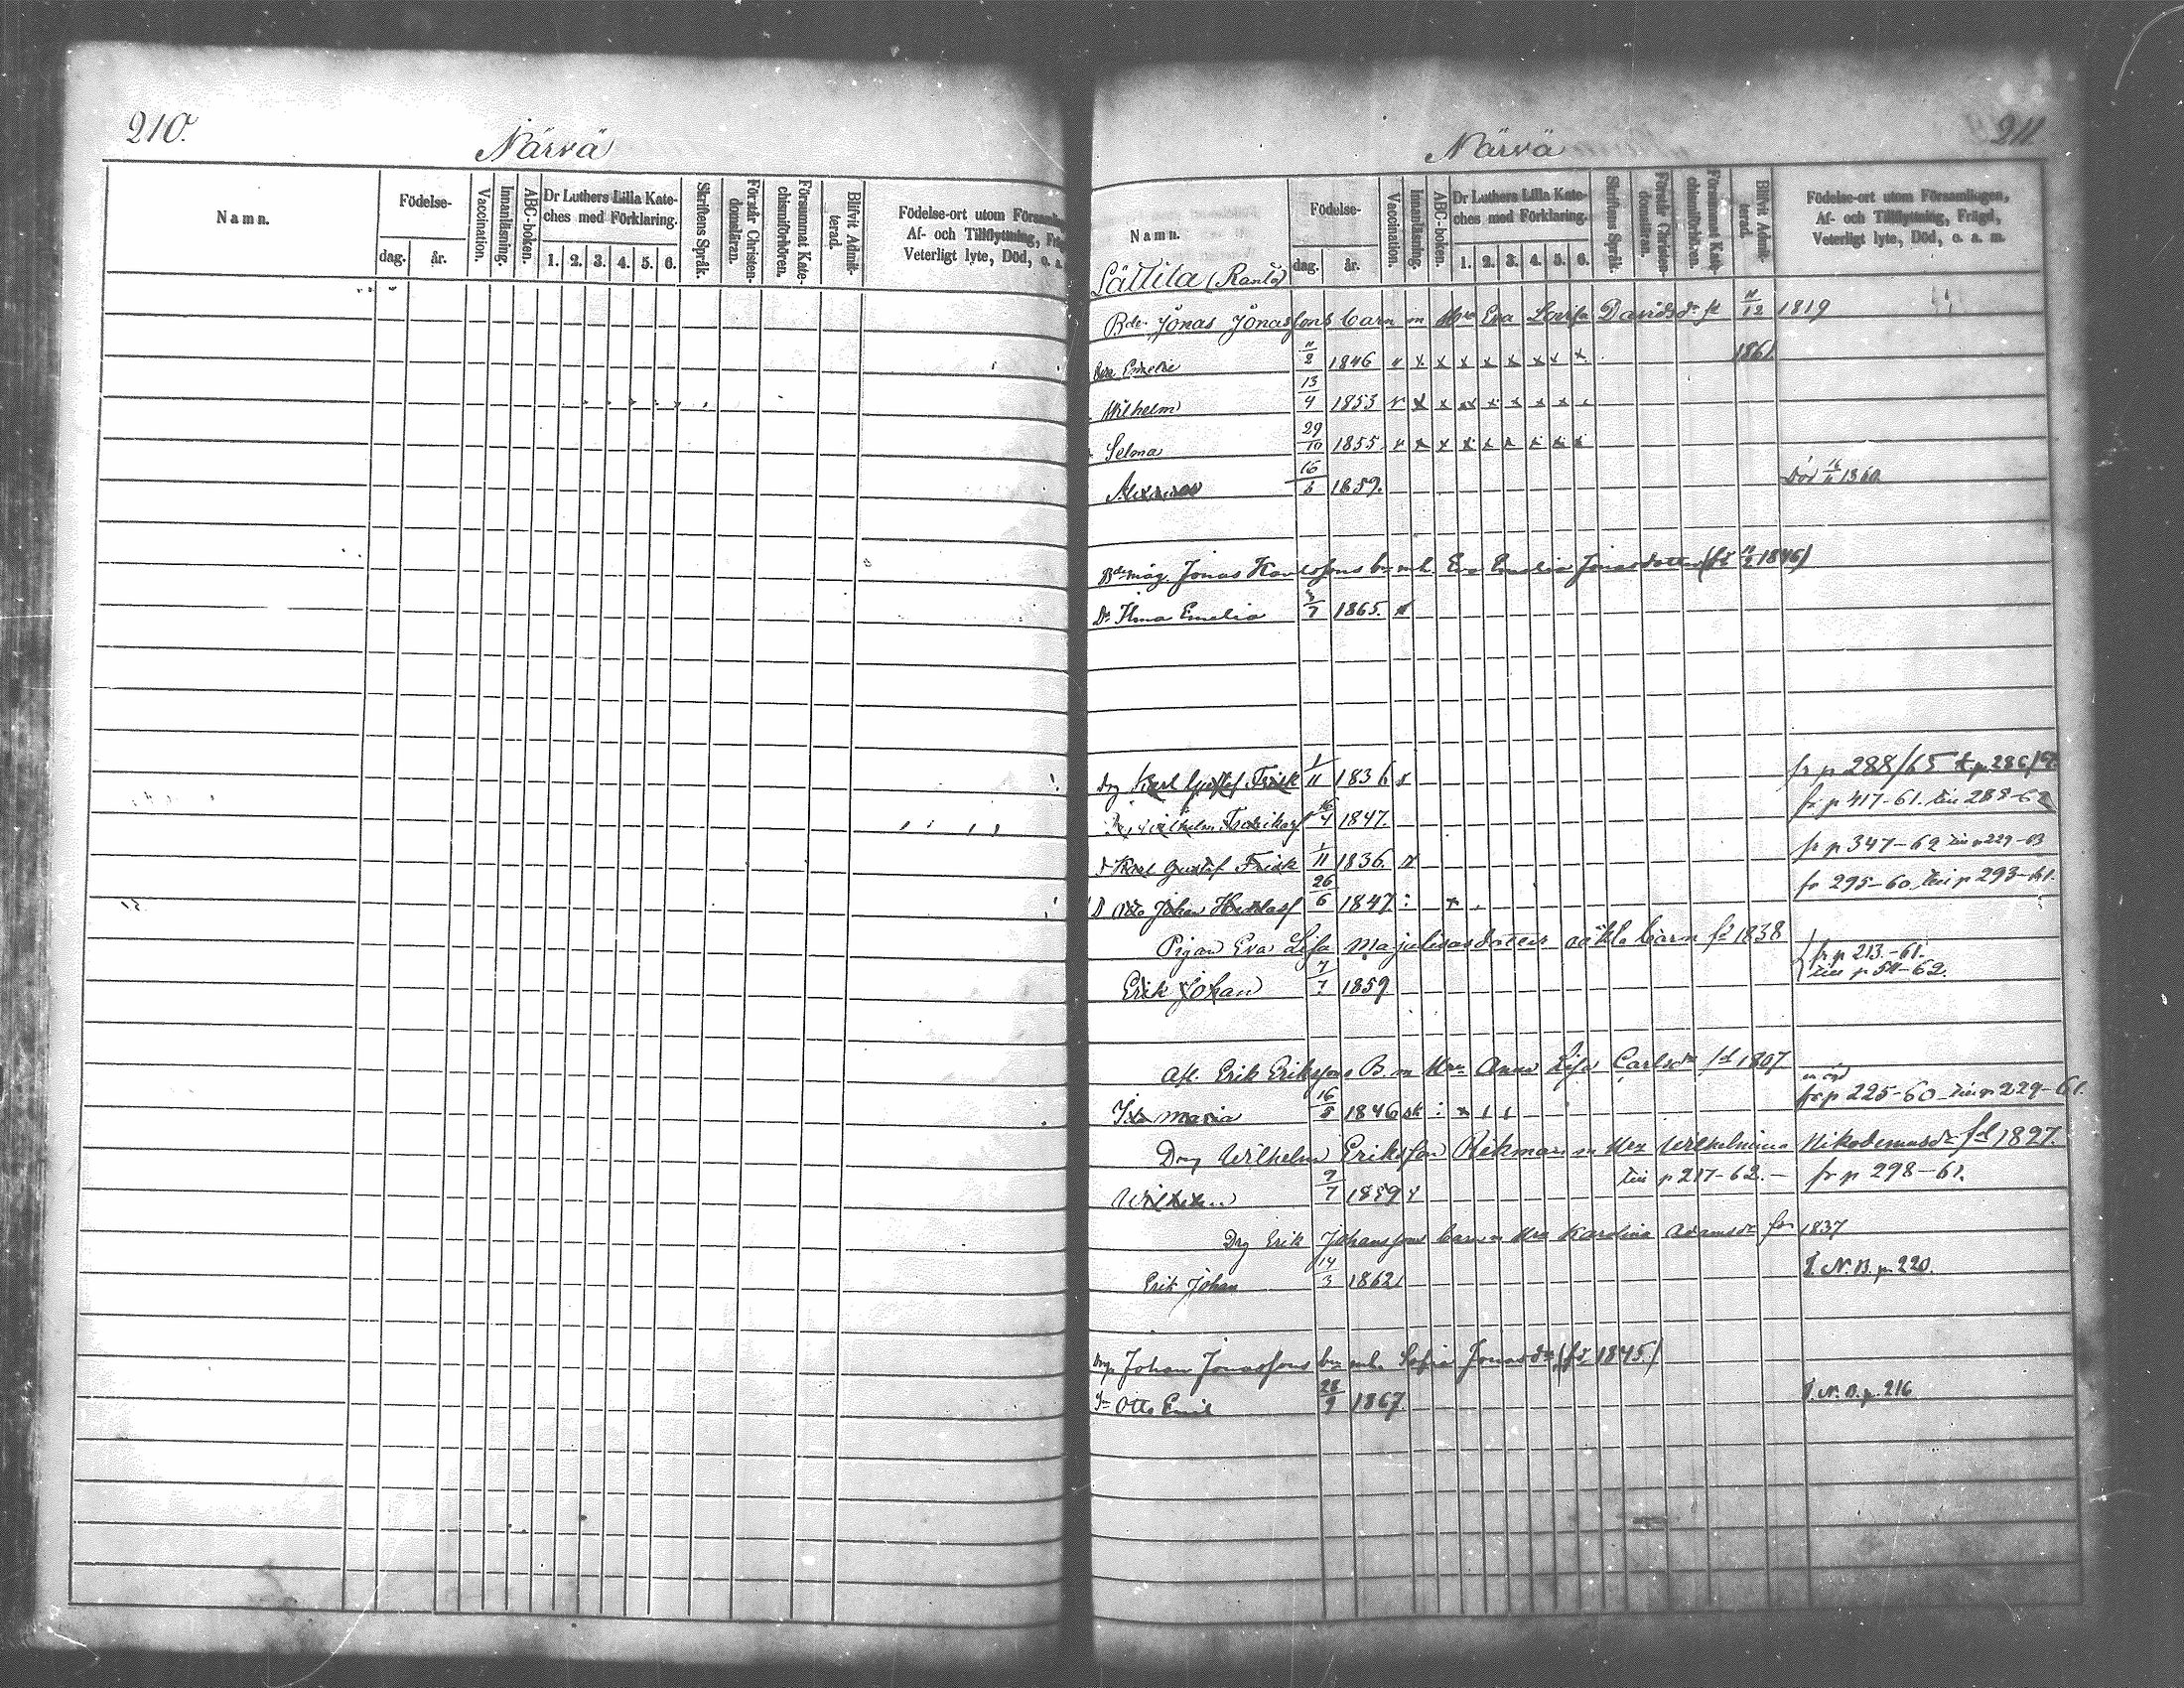 210.
Närvä
Namn.
Födelse-
dag.
år.
Vaccination.
Innanläsning.
ABC-boken.
Dr Luthers Lilla Kate-
ches med Förklaring.
1. 2. 3. 4. 5. 6.
Skriftens Språk.
Förstår Christen-
domsläran.
Försummat Kate-
chismiförhören.
Blifvit Admit-
terad.
Födelse-ort utom Församlin
Af- och Tillflyttning, Fräg
Veterligt lyte, Död, o. a.
211
Närvä
Namn.
Födelse-
dag.
år.
Vaccination.
Innanläsning.
ABC-boken.
Dr Luthers Lilla Kate-
ches med Förklaring.
1. 2. 3. 4. 5. 6.
Skriftens Språk.
Förstår Christen-
domsläran.
Försummat Kate-
chismiförhören.
Blifvit Admit-
terad.
Födelse-ort utom Församlingen,
Af- och Tillflyttning, Frägd,
Veterligt lyte, Död, o. a. m.
Lättilä (Ranta)
Jonas Jonassons barn m Eva Davidsdr 11/12 1819
Emelie 11/2 1846 x x x x x x x x 1861
Wilhelm 13/4 1853 x x x x x x x
Selma 29/10 1855 x x x x x x x
16 1859. Död 1860
Jonas Eva Emelia Jonasdotter (fd 11/2 1846)
Dr Ilma Emelia 5/7 1865.
Drg Karl Gustaf Frisk 1/11 1836 fr p 288/65 t p 286/
Wilhelm Fredriksf 16/4 1847. fr p 417-61. till 288-62
Karl Gustaf Frisk 1/11 1836. fr p 347-62 till p 229-63
Otto Johan 26/6 1847. fr 295-60 till p 293-61.
Pigan Eva Lisa Majalisasdotters oäkta barn fd 1838
fr p 213.-61.
till p 54-62.
Erik Johan 7/7 1859
Afl. Erik Erikssons B. m Anna Lisa Carlsdr fd 1807
Ida Maria 16/8 1846 fr p 225-60 till p 229-61.
Drg Wilhelm Eriksson Rekman m Wilhelmina Nikodemusdr fd 1827.
Wilhelm 9/7 1859 till p 217-62.- fr p 298-61.
Drg Erik Johanssons barn m Karolina Adamsdr 1837
Erik Johan 14/3 1862 T. N. B. p. 220.
Johan Jonassons Sofia Jonasdr (fd 1845.)
Otto Emil 28/9 1867. T. N. B. p. 216